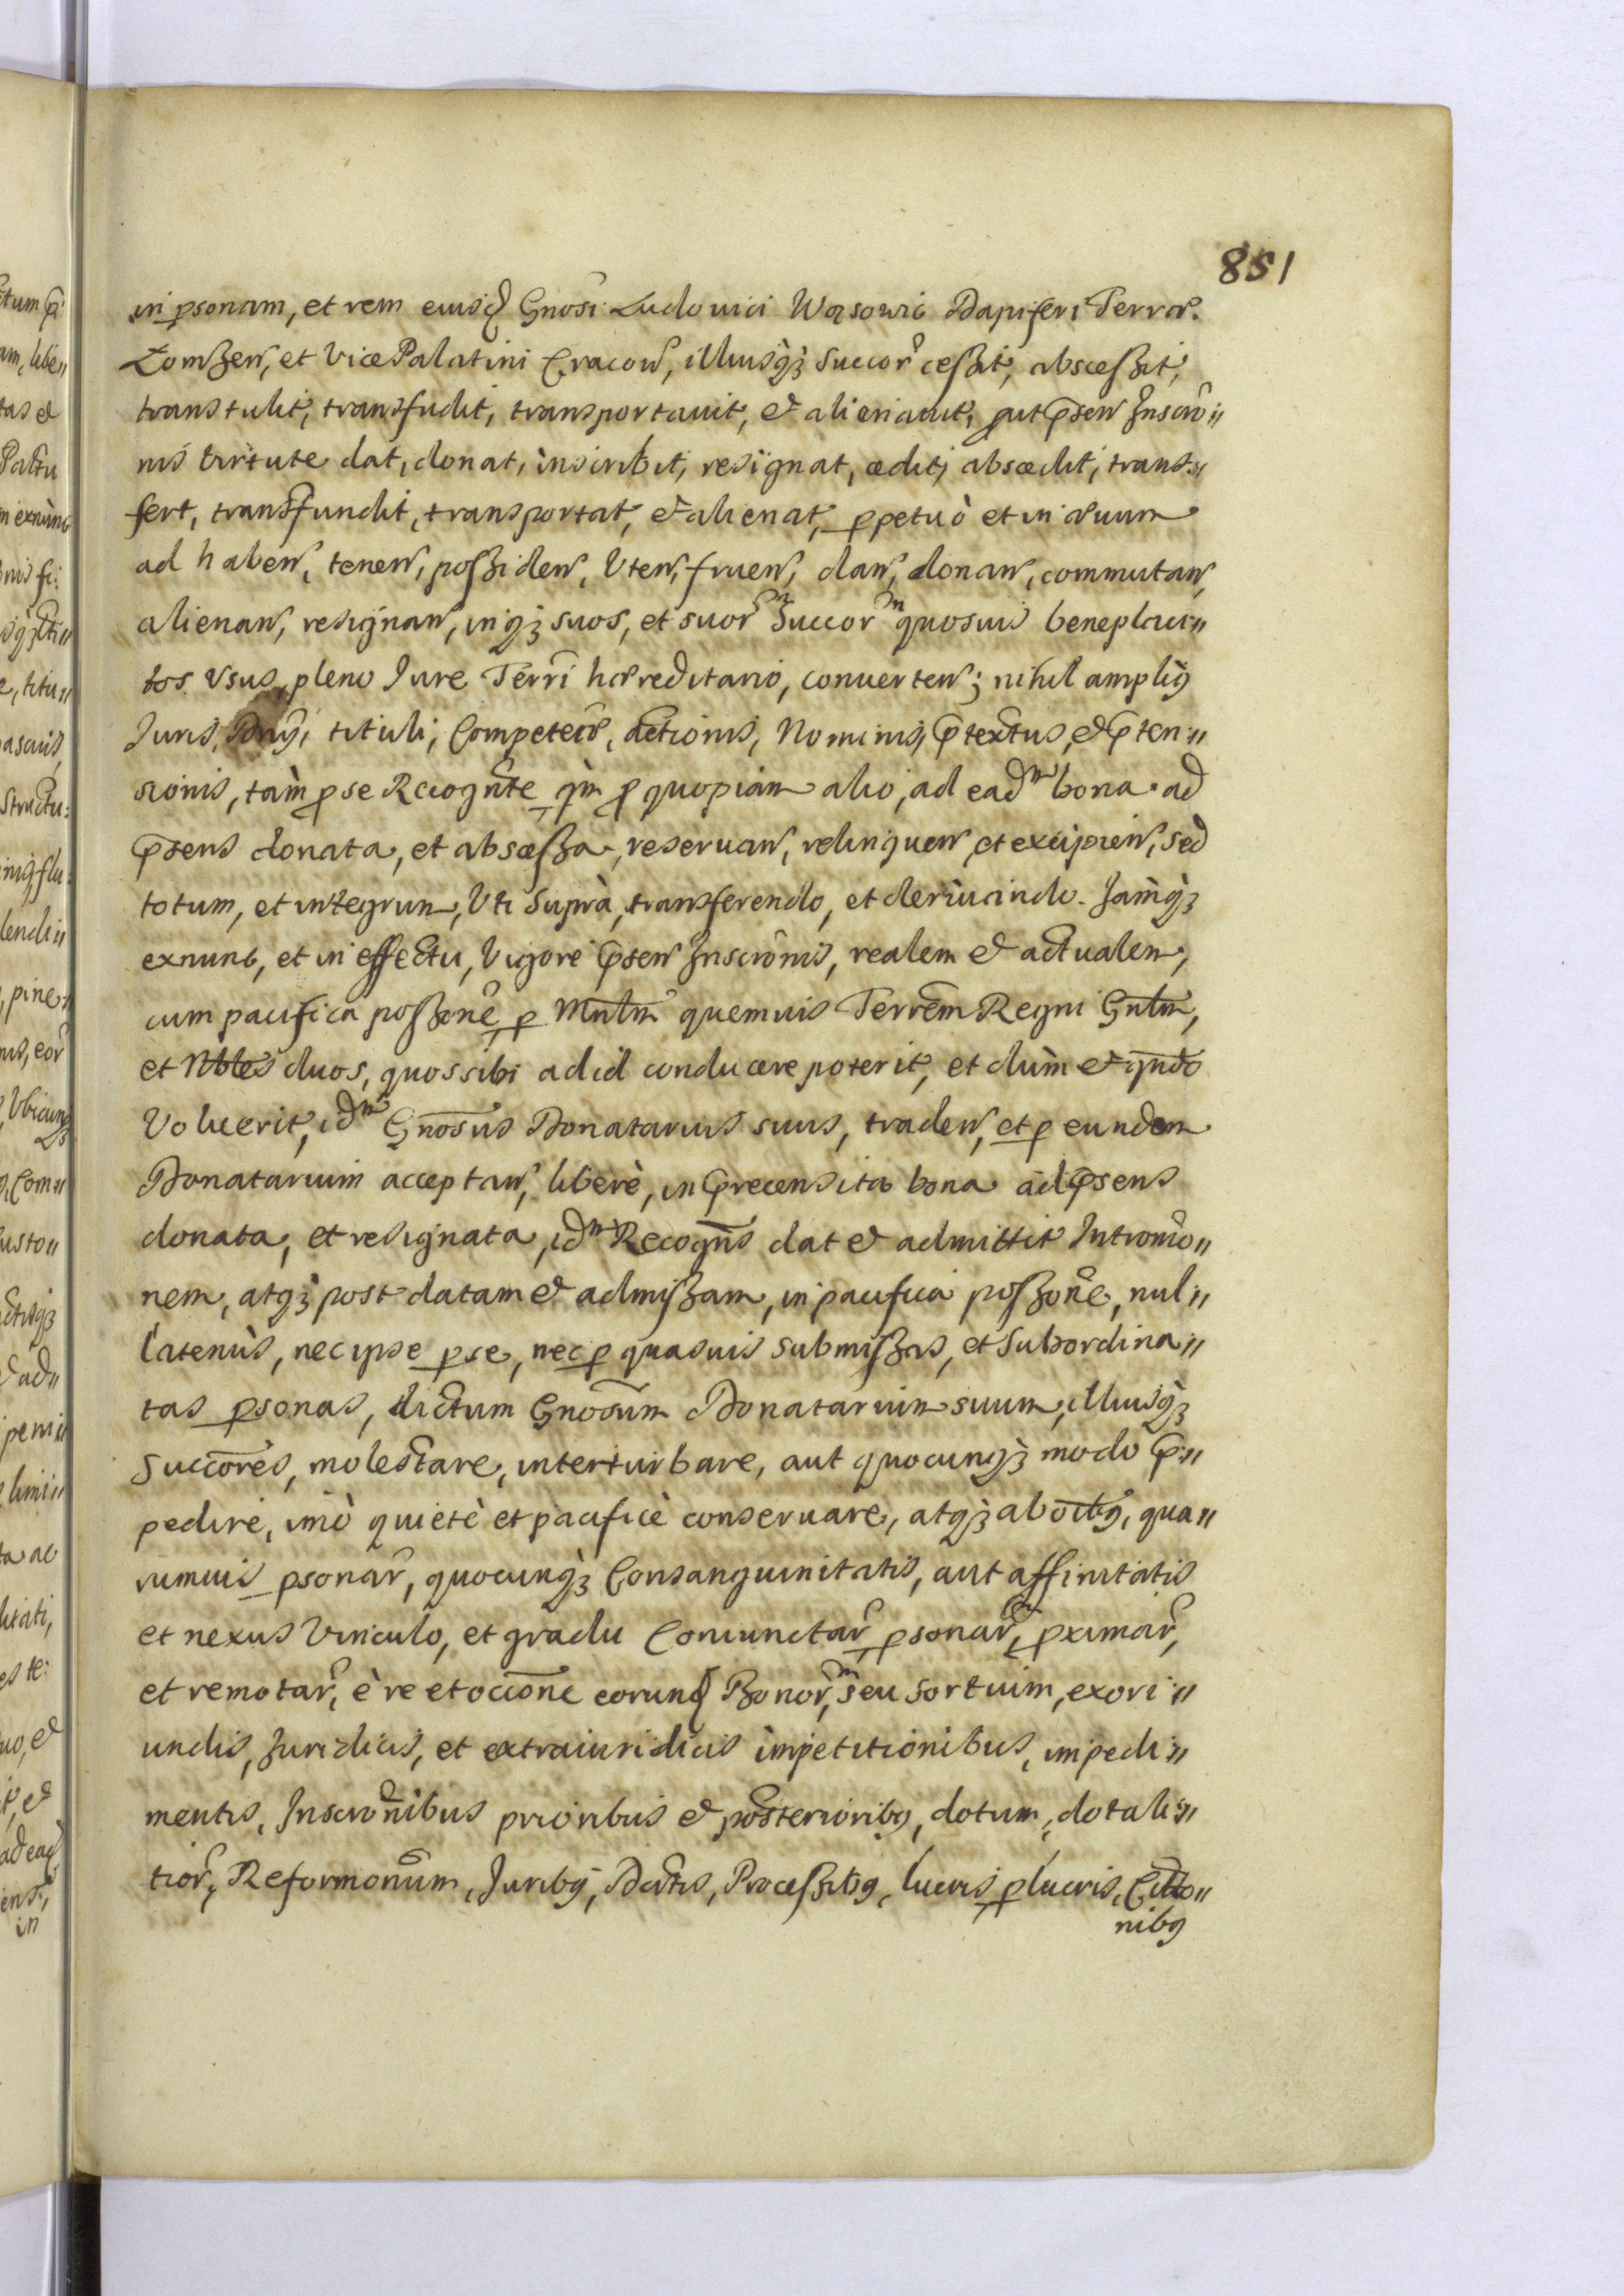 851
in psonam, et rem eiusd Gnosi Ludovici Wąsowic Dapiferi Terrae
Lomzen, et Vice Palatini Cracow, illiusq3 Succor ceßit, absceßit,
transtulit, transfudit, transportavit, et alienavit, prut pnsen Inscro„
nis Virtute dat, donat, inscribit, resignat, cedit, abscedit, trans„
fert, transfundit, transportat, et alienat, ppetuò et in aevum
ad haben, tenen, poßiden, Uten, fruen, dan, donan, commutan,
alienan, resignan, inq3 suos, et suor Succor quosvis beneplaci„
tos Usus, pleno Jure Terri haereditario, converten; nihil ampliq
Juris, Dny, tituli, Competens, Actionis, Nominis, ptextus, et pten„
sionis, tàm p se Recognte qm p quopiam alio, ad eadm bona ad
psens donata, et absceßa, reservan, relinquen, et excipien, sed
totum, et integrum, Uti Suprà, transferendo, et derivando. Jamq3
exnunc, et in effectu, Vigore psen Inscronis, realem et actualem,
cum pacifica poßone, p Mnlm quemvis Terrem Regni Gnlm,
et Nbles duos, quos sibi ad id conducere poterit, et dùm et qndo
Voluerit, idm Gnosus Donatarius suus, traden, et p eundem
Donatarium acceptan, liberè, in precensita bona ad psens
donata, et resignata, idm Recogns dat et admittit Intromo„
nem, atq3 post datam et admißam, in pacifica poßone, nul„
latenùs, nec ipse p se, nec p quasvis submißas, et Subordina„
tas psonas, dictum Gnosum Donatarium suum, illiusq3
Succores, molestare, interturbare, aut quocunq3 modo p„
pedire, imò quietè et pacificè conservare, atq3 ab oibq, qua„
rumvis psonar, quocunq3 Consanguinitatis, aut affinitatis
et nexus Vinculo, et gradu Coniunctar psonar, pximar,
et remotar, è re et occione eorund Bonor, seu Sortium, exori„
undis, Juridicis, et extraiuridicis impetitionibus, impedi„
mentis, Inscronibus prioribus et posterioribq, dotum, dotali„
tior, Reformonum, Juribq, Dctis, Proceßibq, lucris plucris, Citto„
nibq